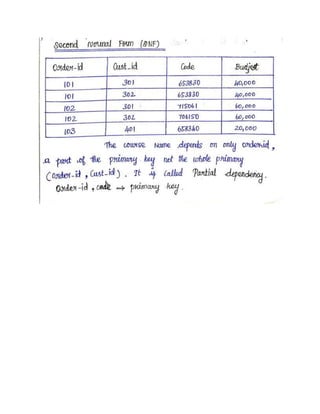 Second Normal Form (2NF)
Order-id Cust-id Code Budjet
101 301 653830 40,000
101 302 653830 40,000
102 301 715061 60,000
102 302 704150 60,000
103 401 658340 20,000
The course Name depends on only orderid,
a part of the primary key not the whole primary
(order-id, Cust-id). It is called Partial dependency.
Order-id, code → primary key.